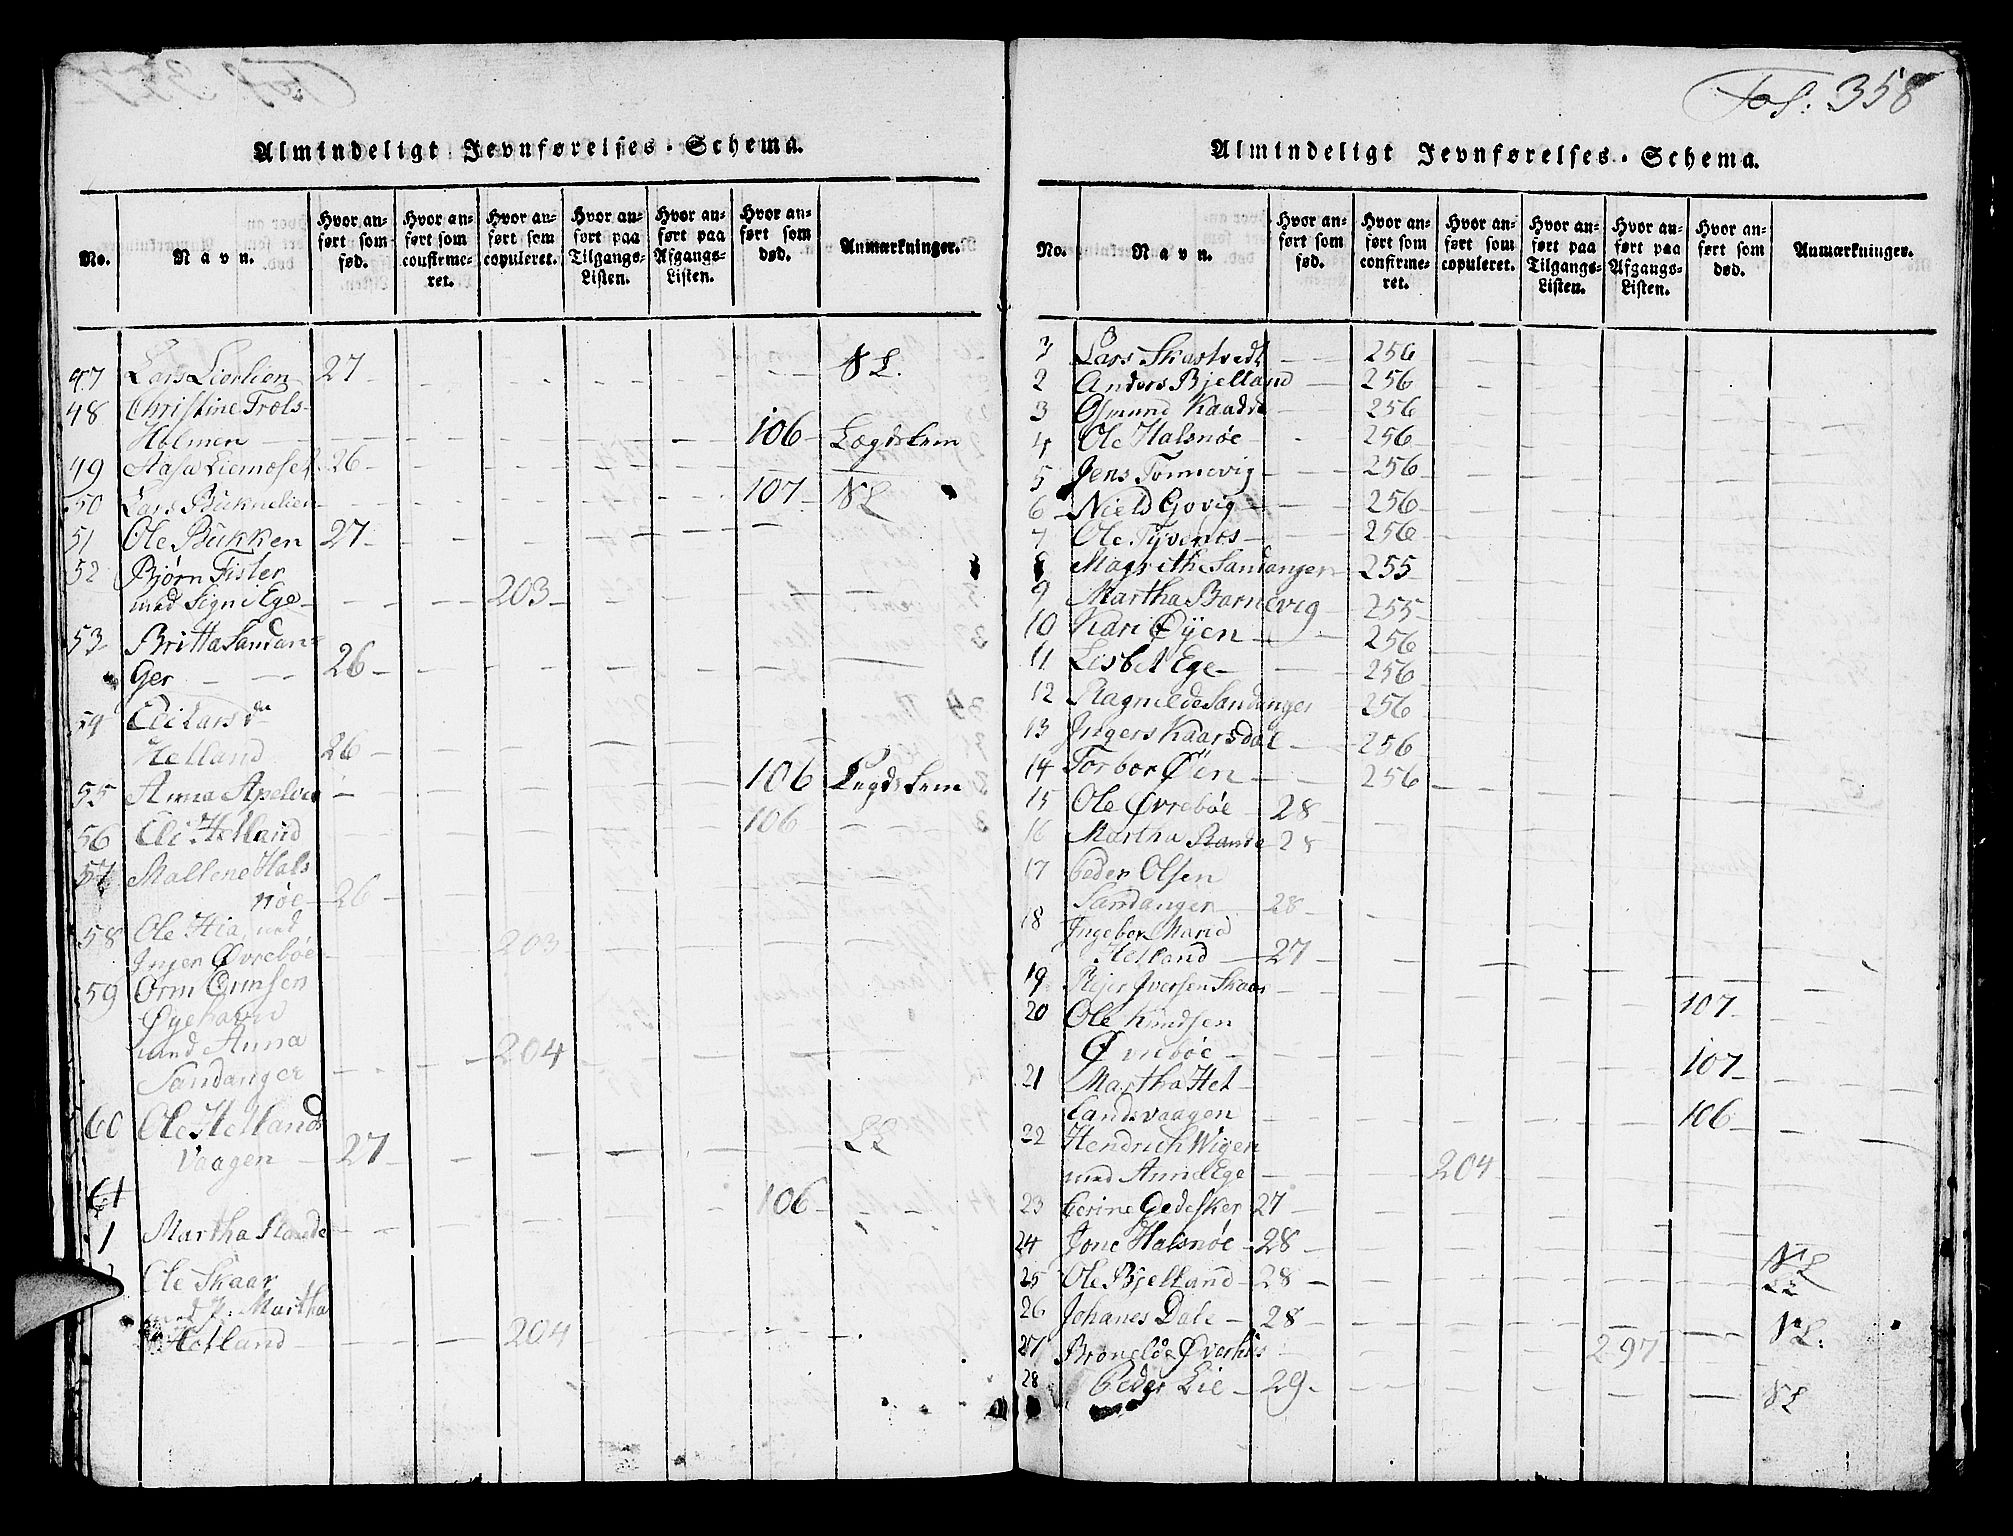 Fol: 358
Almindeligt Jevnførelses-Schema.
No. Navn. Hvor anført som fød. Hvor anført som confirmeret. Hvor anført som copuleret. Hvor anført paa Tilgangs-Listen. Hvor anført paa Afgangs-Listen. Hvor anført som død. Anmarkninger.
47 Lars Lierlien 27 NL.
48 Christine Trols-
Holmen 106 Lægdslem
49 Aasa Liemoset 26
50 Lars Bukkelien 107 NL
51 Ole Bukken 27
52 Bjørn Fister
med Signe Ege 203
53 Britta Sandan-
Ger 26
54 Eli Larsd
Helland 26
55 Anna Apeland 106 Lægdslem
56 Eli Helland 106
57 Mallene Hals
nøe 26
58 Ole Hia med
Injer Øvrebøe 203
59 Orm Ormsen
Øyehavn
med Anna 204
Sandanger
60 Ole Hellands
Vaagen 27 LL
61 106
1 Martha Rande
Ole Skaar
med P: Martha
Hetland 204
Almindeligt Jevnførelses-Schema.
No. Navn. Hvor anført som fød. Hvor anført som confirmeret. Hvor anført som copuleret. Hvor anført paa Tilgangs-Listen. Hvor anført paa Afgangs-Listen. Hvor anført som død. Anmarkninger.
1 Lars Skastvedt 256
2 Anders Bjelland 256
3 Osmund Kaada 256
4 Ole Halsnøe 256
5 Jens Tonnevig 256
6 Niels Govig 256
7 Ole Tyvenes 256
8 Magrethe Sandanger 255
9 Martha Barnevig 255
10 Kari Øyen 256
11 Lisbet Ege 256
12 Ragnilde Sandanger 256
13 Ingers Kaarsdal 256
14 Torbor Øien 256
15 Ole Øvrebøe 28
16 Martha Rande 28
17 Peder Olsen
Sandanger 28
18 Ingebor Marie
Helland 27
19 Rejer Iversen Skaar 107
20 Ole Knudsen
Øvrebøe 107
21 Martha Hel-
landsvaagen 106
22 Hendrich Wigen
med Anna Ege 204
23 Serine Gedesker 27
24 Jone Halsnøe 28 NL
25 Ole Bjelland 28 LL
26 Johanes Dale 28 NL.
27 Øverhus 297
28 Peder Lie 29 NL